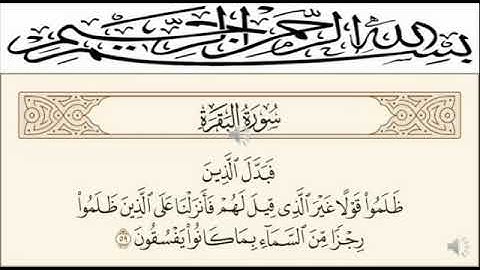 بسم الله الرحمن الرحيم
سُورَةُ البَقَرَةِ
فَبَدَّلَ ٱلَّذِينَ
ظَلَمُوا۟ قَوْلًا غَيْرَ ٱلَّذِى قِيلَ لَهُمْ فَأَنزَلْنَا عَلَى ٱلَّذِينَ ظَلَمُوا۟
رِجْزًا مِّنَ ٱلسَّمَآءِ بِمَا كَانُوا۟ يَفْسُقُونَ ٥٩